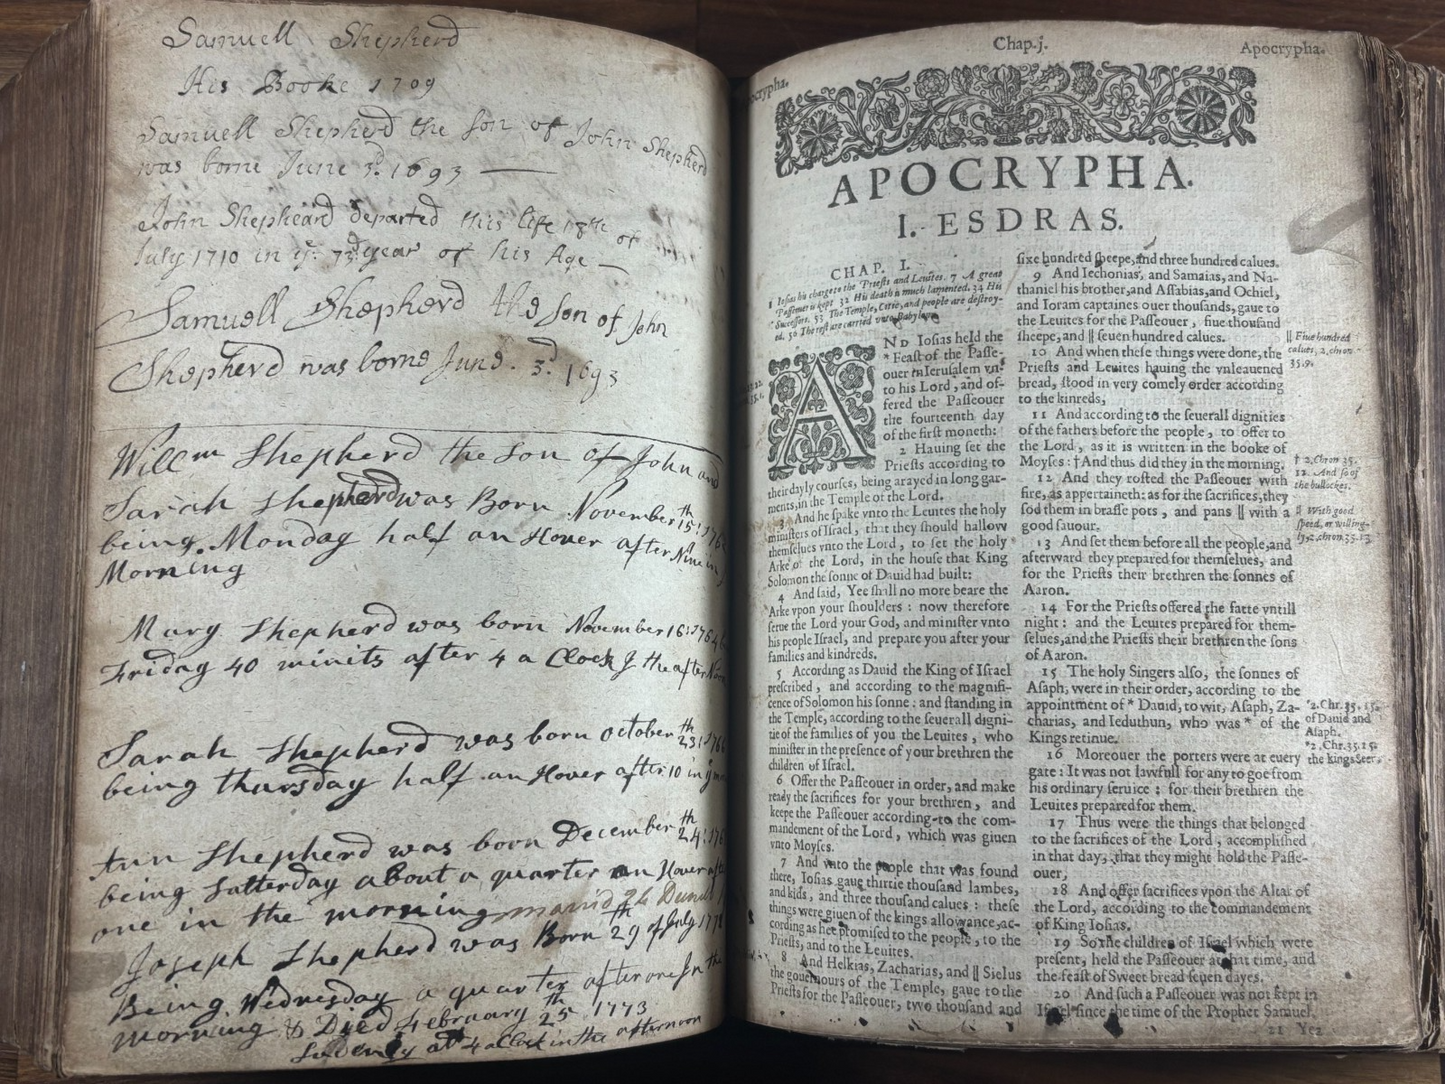 Samuell Shepherd
His Booke 1709
Samuell Shepherd the son of John Shepherd
was borne June 3d. 1693
John Shepheard departed this life 18th of
July 1710 in ye. 73d year of his Age
Samuell Shepherd the son of John
Shepherd was borne June. 3d. 1693
Willm Shepherd the son of John and
Sarah Shepherd was Born November 15th
being Monday half an Hover after Nine in
Morning
Mary Shepherd was born November 16:
Friday 40 minits after 4 a Clock J the after
Sarah Shepherd was born October 23th:
being thursday half an Hover after 10 in
Ann Shepherd was born December 24th:
being Satterday about a quarter an Hover
one in the morning
Joseph Shepherd was Born 29th of July
Being Wednesday a quarter after one In the
morning & Died February 25th 1773
at 4 a Clock in the afternoon
Chap.j.
Apocrypha.
APOCRYPHA.
I. ESDRAS.
CHAP. I.
1 Iosias his charge to the Priests and Leuites. 7 A great
Passeouer is kept 32 His death is much lamented. 34 His
Successors. 53 The Temple, Citie, and people are destroy-
ed. 56 The rest are carried vnto Babylon.
AND Iosias held the
* Feast of the Passe-
ouer in Ierusalem vn-
to his Lord, and of-
fered the Passeouer
the fourteenth day
of the first moneth:
2 Hauing set the
Priests according to
their dayly courses, being arayed in long gar-
ments, in the Temple of the Lord.
3 And he spake vnto the Leuites the holy
ministers of Israel, that they should hallow
themselues vnto the Lord, to set the holy
Arke of the Lord, in the house that King
Solomon the sonne of Dauid had built:
4 And said, Yee shall no more beare the
Arke vpon your shoulders: now therefore
serue the Lord your God, and minister vnto
his people Israel, and prepare you after your
families and kindreds.
5 According as Dauid the King of Israel
prescribed, and according to the magnifi-
cence of Solomon his sonne: and standing in
the Temple, according to the seuerall digni-
tie of the families of you the Leuites, who
minister in the presence of your brethren the
children of Israel.
6 Offer the Passeouer in order, and make
ready the sacrifices for your brethren, and
keepe the Passeouer according to the com-
mandement of the Lord, which was giuen
vnto Moyses.
7 And vnto the people that was found
there, Iosias gaue thirtie thousand lambes,
and kids, and three thousand calues: these
things were giuen of the kings allowance, ac-
cording as hee promised to the people, to the
Priests, and to the Leuites.
8 And Helkias, Zacharias, and || Sielus
the gouernours of the Temple, gaue to the
Priests for the Passeouer, two thousand and
sixe hundred sheepe, and three hundred calues.
9 And Iechonias, and Samaias, and Na-
thaniel his brother, and Assabias, and Ochiel,
and Ioram captaines ouer thousands, gaue to
the Leuites for the Passeouer, fiue thousand
sheepe, and || seuen hundred calues.
10 And when these things were done, the
Priests and Leuites hauing the vnleauened
bread, stood in very comely order according
to the kinreds,
11 And according to the seuerall dignities
of the fathers before the people, to offer to
the Lord, as it is written in the booke of
Moyses: † And thus did they in the morning.
12 And they rosted the Passeouer with
fire, as appertaineth: as for the sacrifices, they
sod them in brasse pots, and pans || with a
good sauour.
13 And set them before all the people, and
afterward they prepared for themselues, and
for the Priests their brethren the sonnes of
Aaron.
14 For the Priests offered the fatte vntill
night: and the Leuites prepared for them-
selues, and the Priests their brethren the sons
of Aaron.
15 The holy Singers also, the sonnes of
Asaph, were in their order, according to the
appointment of * Dauid, to wit, Asaph, Za-
charias, and Ieduthun, who was * of the
Kings retinue.
16 Moreouer the porters were at euery
gate: It was not lawfull for any to goe from
his ordinary seruice: for their brethren the
Leuites prepared for them.
17 Thus were the things that belonged
to the sacrifices of the Lord, accomplished
in that day, that they might hold the Passe-
ouer,
18 And offer sacrifices vpon the Altar of
the Lord, according to the commandement
of King Iosias.
19 So the children of Israel which were
present, held the Passeouer at that time, and
the feast of Sweet bread seuen dayes.
20 And such a Passeouer was not kept in
Israel since the time of the Prophet Samuel.
|| Fiue hundred
calues, 2.chron
35.9.
† 2.Chron 35.
12. And so of
the bullockes.
|| With good
speed, or willing-
ly, 2.chron.35.13
*2.Chr.35.15.
of Dauid and
Asaph.
*2.Chr.35.15.
the kings Seer.